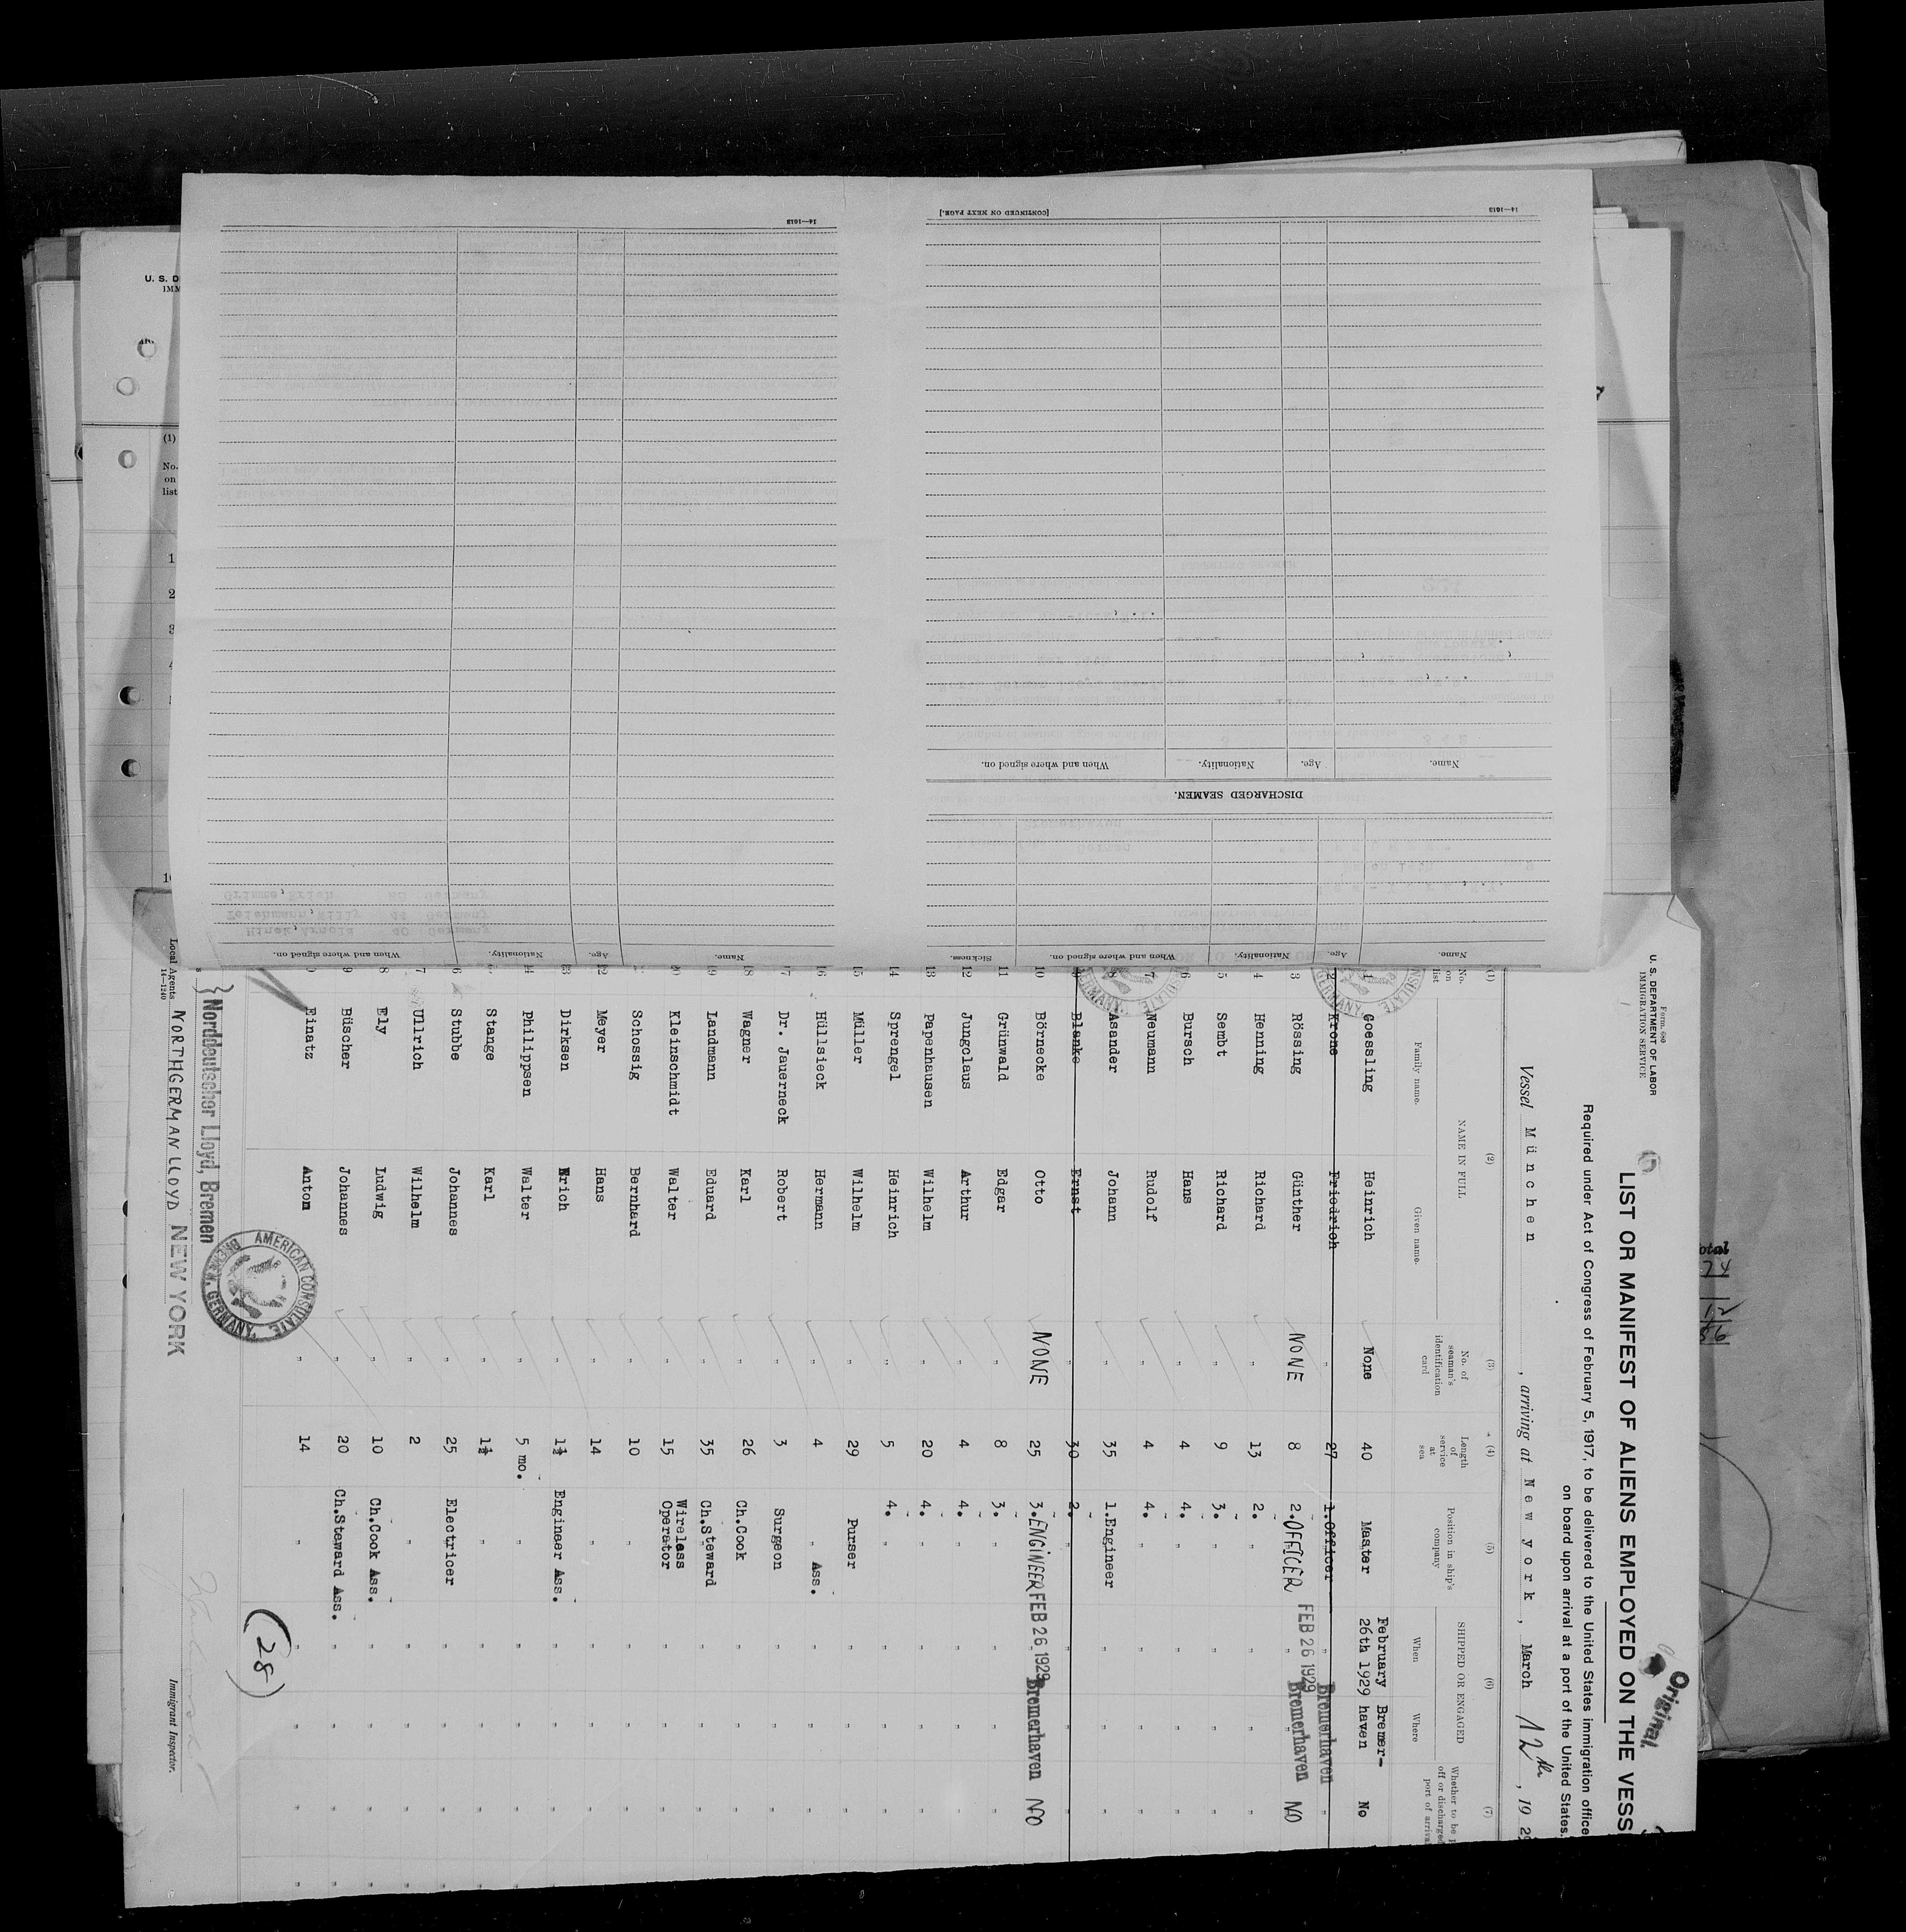 [CONTINUED ON NEXT PAGE.]
14—1613
14—1613
Name.
Age.
Nationality.
When and where signed on.
DISCHARGED SEAMEN.
Name.
Age.
Nationality.
When and where signed on.
Sickness.
Name.
Age.
Nationality.
When and where signed on.
U. S. D
IMM
(1)
No.
on
list
1
2
3
4
Form 680
U. S. DEPARTMENT OF LABOR
IMMIGRATION SERVICE
Original
LIST OR MANIFEST OF ALIENS EMPLOYED ON THE VESS
Required under Act of Congress of February 5, 1917, to be delivered to the United States immigration office
on board upon arrival at a port of the United States.
Vessel München , arriving at New york , March 12th , 192
(1) (2) (3) (4) (5) (6) (7)
No. on list NAME IN FULL No. of seaman's identification card Length of service at sea Position in ship's company SHIPPED OR ENGAGED Whether to be off or discharged port of arriva
Family name. Given name. When Where
1 Goessling Heinrich None 40 Master February 26th 1929 Bremer-haven No
2 Krone Friedrich " 27 1.Officer " Bremerhaven "
3 Rössing Günther NONE 8 2.OFFICER FEB 26 1929 Bremerhaven NO
4 Henning Richard " 13 2. " " " "
5 Sembt Richard " 9 3. " " " "
6 Bursch Hans " 4 4. " " " "
7 Neumann Rudolf " 4 4. " " " "
8 Asander Johann " 35 1.Engineer " " "
9 Blanke Ernst " 30 2. " " " "
10 Börnecke Otto NONE 25 3.ENGINEER FEB 26 1929 Bremerhaven NO
11 Grünwald Edgar " 8 3. " " " "
12 Jungclaus Arthur " 4 4. " " " "
13 Papenhausen Wilhelm " 20 4. " " " "
14 Sprengel Heinrich " 5 4. " " " "
15 Müller Wilhelm " 29 Purser " " "
16 Hüllsieck Hermann " 4 " Ass. " " "
17 Dr. Jauerneck Robert " 3 Surgeon " " "
18 Wagner Karl " 26 Ch.Cook " " "
19 Landmann Eduard " 35 Ch.Steward " " "
20 Kleinschmidt Walter " 15 Wireless Operator " " "
Schossig Bernhard " 10 " " " "
22 Meyer Hans " 14 " " "
23 Dirksen Erich " 1½ Engineer Ass. " " "
24 Philippsen Walter " 5 mo. " " " "
Stange Karl " 1½ " " " "
6 Stubbe Johannes " 25 Electricer " " "
7 Ullrich Wilhelm " 2 " " " "
8 Ely Ludwig " 10 Ch.Cook Ass. " " "
9 Büscher Johannes " 20 Ch.Steward Ass. " " "
0 Einatz Anton " 14 " " " "
(28)
AMERICAN CONSULATE BREMEN, GERMANY.
Norddeutscher Lloyd, Bremen
Local Agents NORTHGERMAN LLOYD NEW YORK
14—1240
Immigrant Inspector.
otal
74